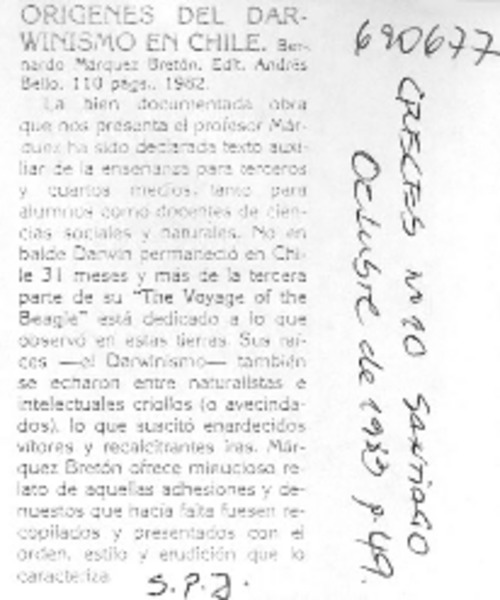 ORIGENES DEL DAR-
WINISMO EN CHILE. Ber-
nardo Márquez Bretón. Edit. Andrés
Bello. 110 págs., 1982.
La bien documentada obra
que nos presenta el profesor Már-
quez ha sido declarada texto auxi-
liar de la enseñanza para terceros
y cuartos medios, tanto para
alumnos como docentes de cien-
cias sociales y naturales. No en
balde Darwin permaneció en Chi-
le 31 meses y más de la tercera
parte de su "The Voyage of the
Beagle" está dedicado a lo que
observó en estas tierras. Sus raí-
ces —el Darwinismo— también
se echaron entre naturalistas e
intelectuales criollos (o avecinda-
dos), lo que suscitó enardecidos
vítores y recalcitrantes iras. Már-
quez Bretón ofrece minucioso re-
lato de aquellas adhesiones y de-
nuestos que hacía falta fuesen re-
copilados y presentados con el
orden, estilo y erudición que lo
caracteriza.
S.P.J.
690677
CRECES Nº 10 SANTIAGO
Octubre de 1983 p. 49.